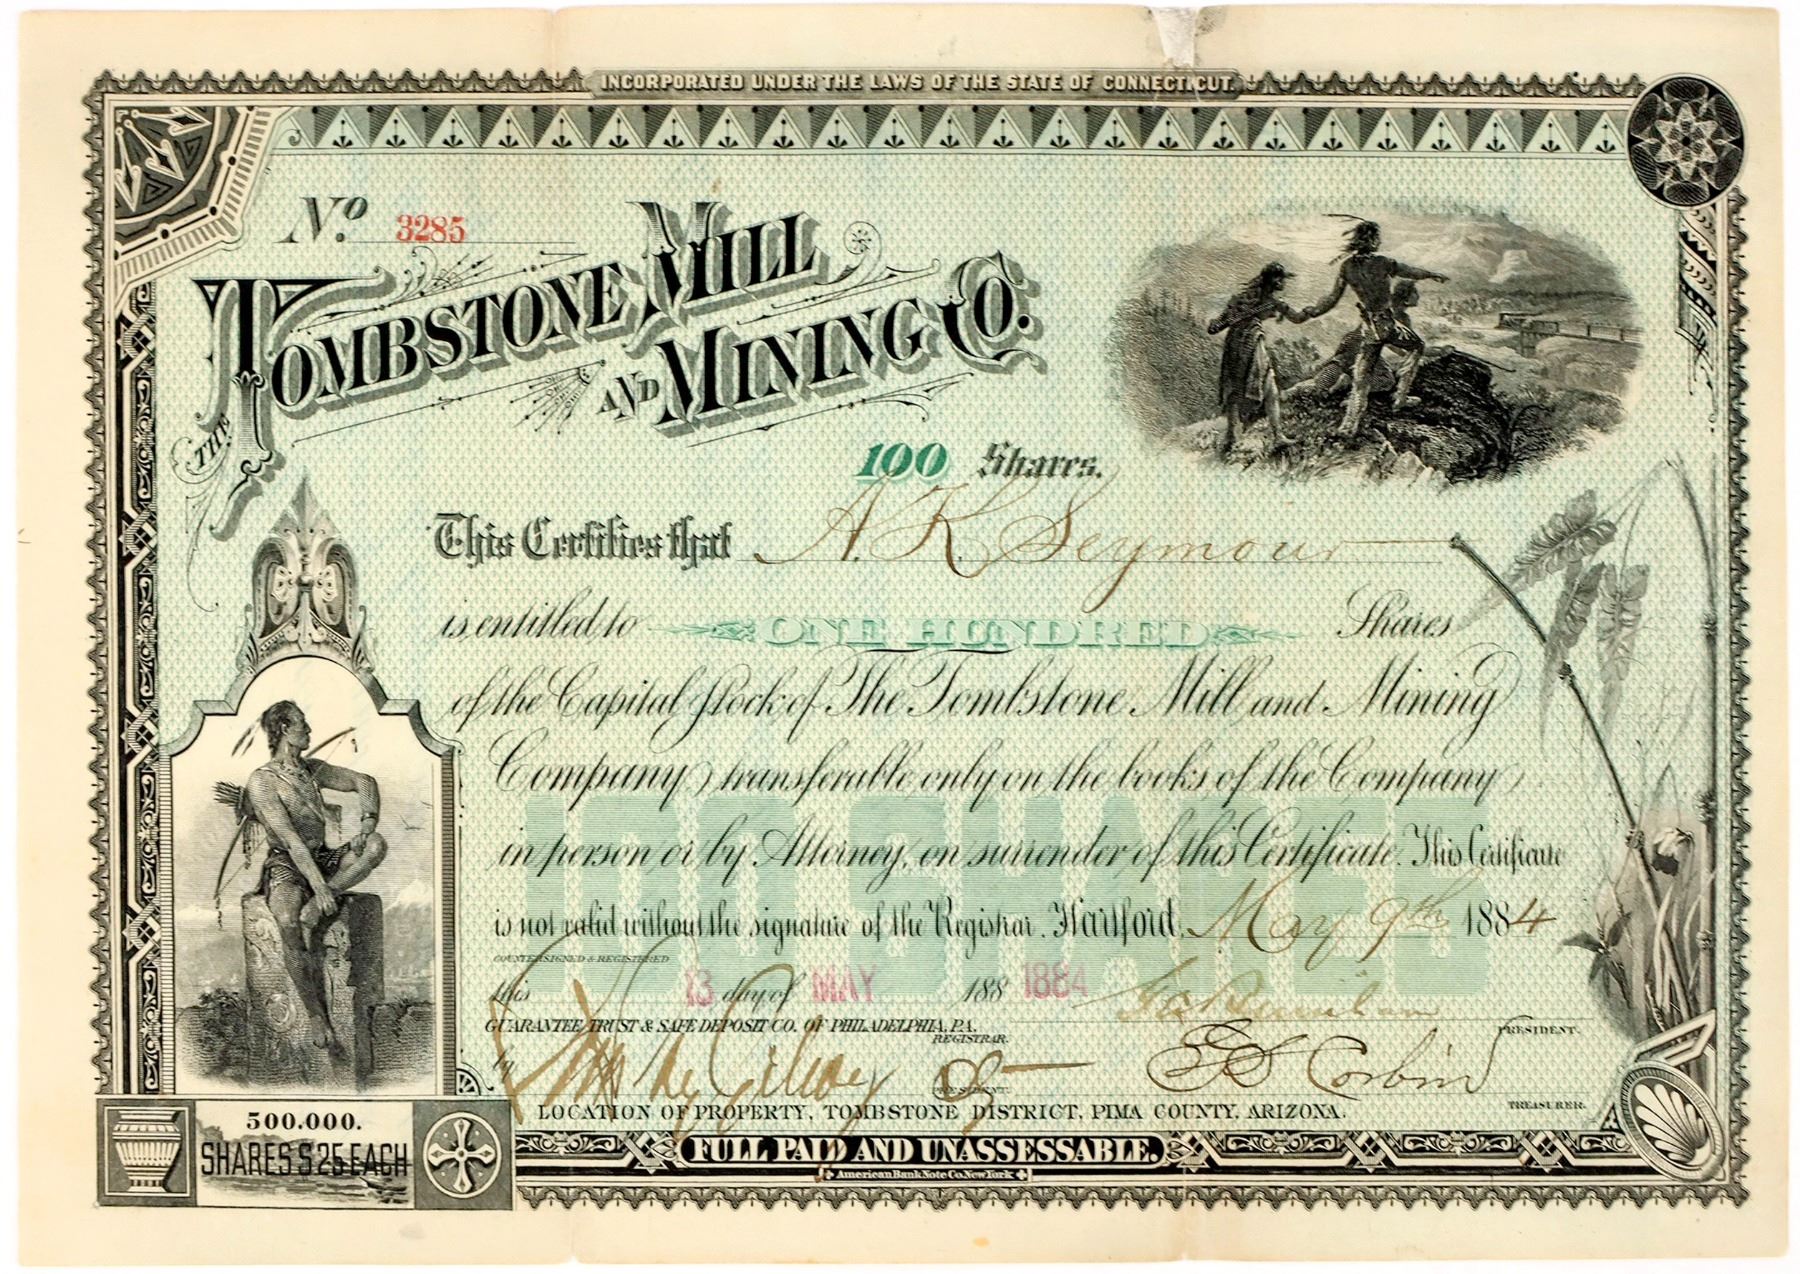 INCORPORATED UNDER THE LAWS OF THE STATE OF CONNECTICUT.
No. 3285
THE TOMBSTONE MILL
AND MINING CO.
100 Shares.
This Certifies that A. K. Seymour
is entitled to ONE HUNDRED Shares
of the Capital Stock of The Tombstone Mill and Mining
Company, transferable only on the books of the Company,
in person or by Attorney, on surrender of this Certificate. This Certificate
is not valid without the signature of the Registrar. Hartford, May 9th 1884
100 SHARES
COUNTERSIGNED & REGISTERED
this 13 day of MAY 188 1884
GUARANTEE TRUST & SAFE DEPOSIT CO. OF PHILADELPHIA, PA.
REGISTRAR.
PRESIDENT.
by
PRESIDENT.
Corbin
TREASURER.
LOCATION OF PROPERTY, TOMBSTONE DISTRICT, PIMA COUNTY, ARIZONA.
500.000.
SHARES $25 EACH
FULL PAID AND UNASSESSABLE.
American Bank Note Co. New York